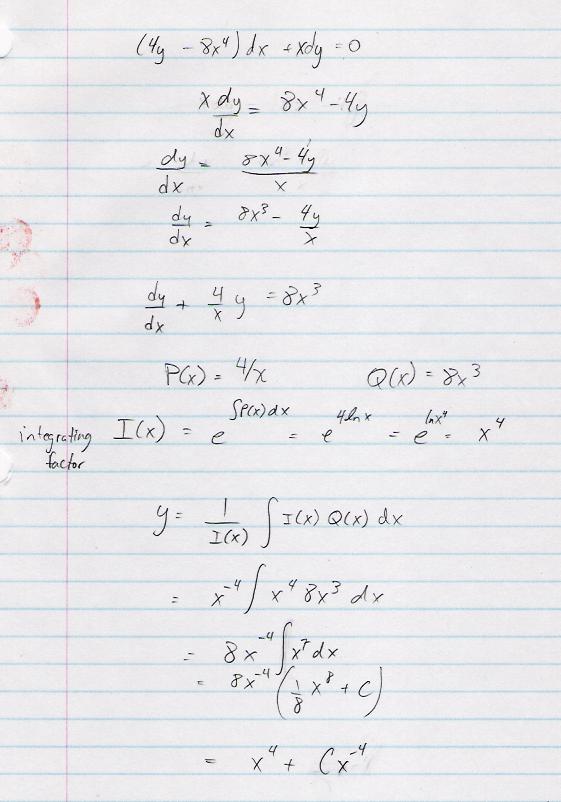 (4y - 8x⁴) dx + xdy = 0
x dy/dx = 8x⁴ - 4y
dy/dx = (8x⁴ - 4y)/x
dy/dx = 8x³ - 4y/x
dy/dx + 4/x y = 8x³
P(x) = 4/x Q(x) = 8x³
integrating factor I(x) = e^(∫P(x)dx) = e^(4lnx) = e^(lnx⁴) = x⁴
y = 1/I(x) ∫ I(x) Q(x) dx
= x⁻⁴ ∫ x⁴ 8x³ dx
= 8x⁻⁴ ∫ x⁷ dx
= 8x⁻⁴ (1/8 x⁸ + C)
= x⁴ + Cx⁻⁴